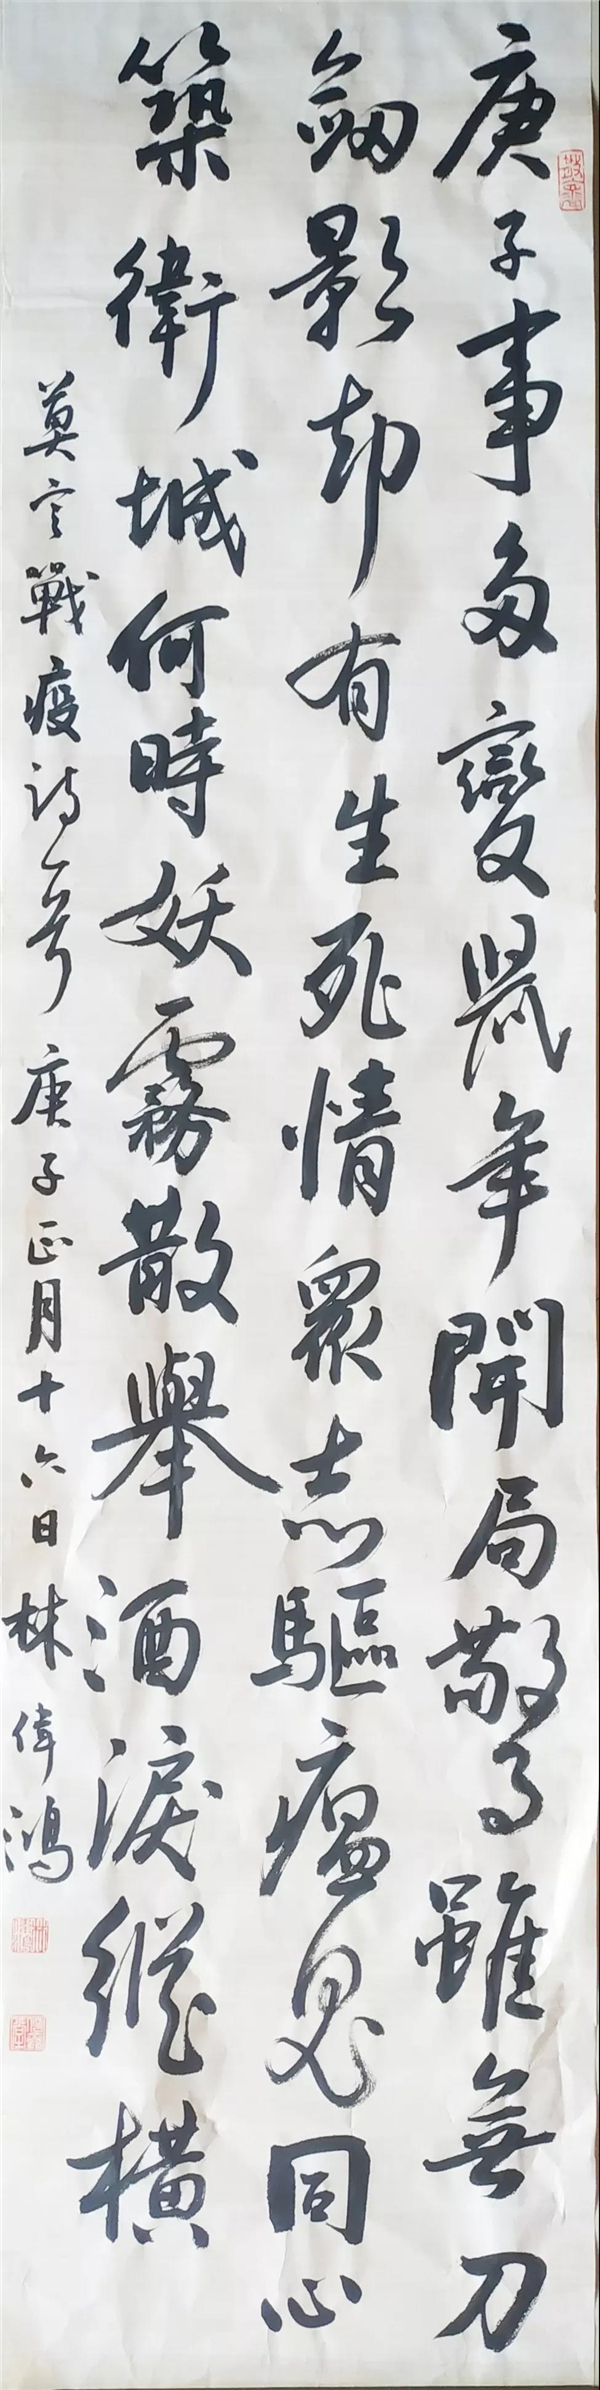 庚子事多變鼠年開局驚雖無刀
劒影却有生死情眾志驅瘟鬼同心
築衛城何時妖霧散舉酒淚縱橫
莫言戰疫詩一首庚子正月十六日林偉鴻